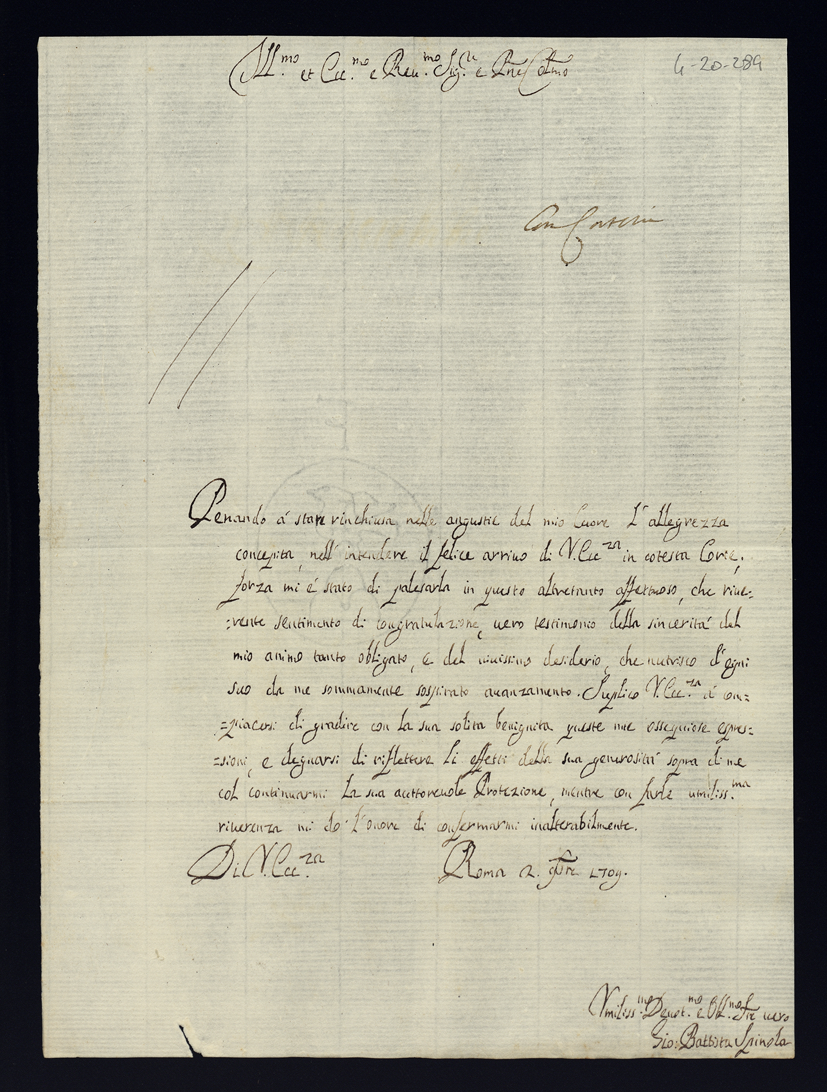 Ill.mo et Ecc.mo e Reu.mo Sig.re e Pne Colmo
4-20-289
Penando á stare rinchiusa nelle angustie del mio Cuore l'allegrezza
concepita, nell'intendere il felice arriuo di V.Ecc.za in cotesta Corte,
forza mi é stato di palesarla in questo altretanto affettuoso, che riue-
-rente sentimento di congratulazione, uero testimonio della sincerita' del
mio animo tanto obligato, e del uiuissimo desiderio, che nutrisco d'ogni
suo da me sommamente sospirato auanzamento. Suplico V.Ecc.za á com=
=piacersi di gradire con la sua solita benignita queste mie ossequiose espres=
=sioni, e degnarsi di riflettere li effetti della sua generosita' sopra di me
col continuarmi la sua auttoreuole Protezione, mentre con farle umiliss.ma
riuerenza mi do' l'onore di confermarmi inalterabilmente.
Di V.Ecc.za Roma 2. 1709.
Vmiliss.mo Deuot.mo e Obl.mo Sre uero
Gio: Battista Spinola